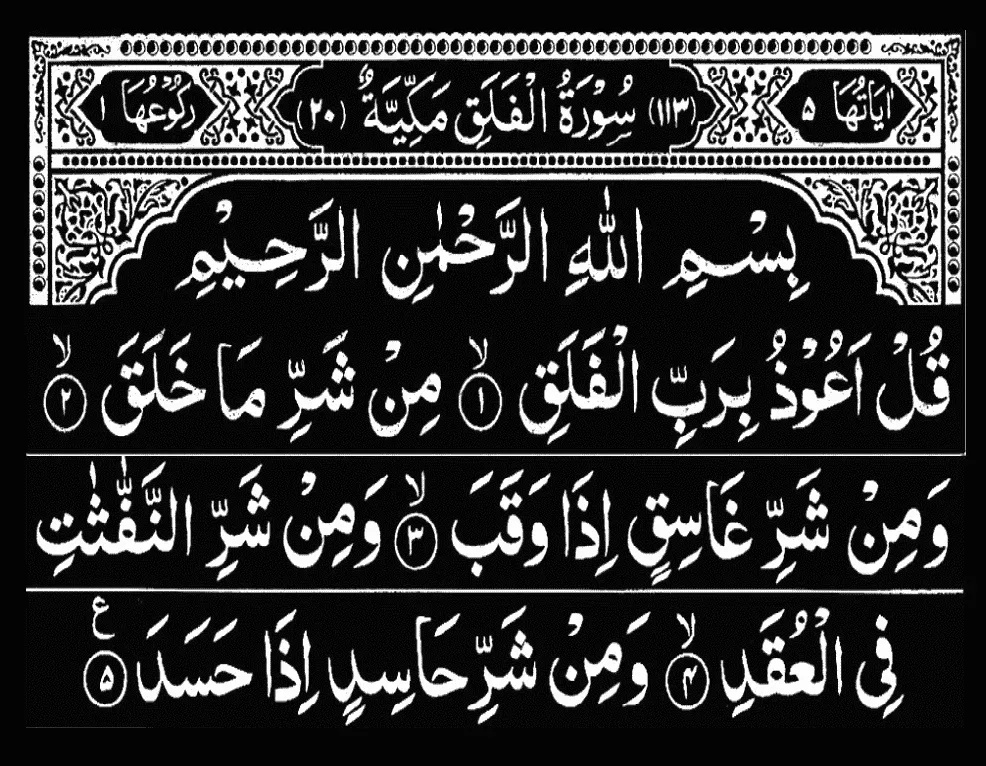 اٰیَاتُهَا ۵ (۱۱۳) سُوْرَةُ الْفَلَقِ مَكِّیَّةٌ (۲۰) رُكُوْعُهَا ۱
بِسْمِ اللّٰهِ الرَّحْمٰنِ الرَّحِیْمِ
قُلْ اَعُوْذُ بِرَبِّ الْفَلَقِ ۙ﴿۱﴾ مِنْ شَرِّ مَا خَلَقَ ۙ﴿۲﴾
وَمِنْ شَرِّ غَاسِقٍ اِذَا وَقَبَ ۙ﴿۳﴾ وَمِنْ شَرِّ النَّفّٰثٰتِ
فِی الْعُقَدِ ۙ﴿۴﴾ وَمِنْ شَرِّ حَاسِدٍ اِذَا حَسَدَ ﴿۵﴾ ع